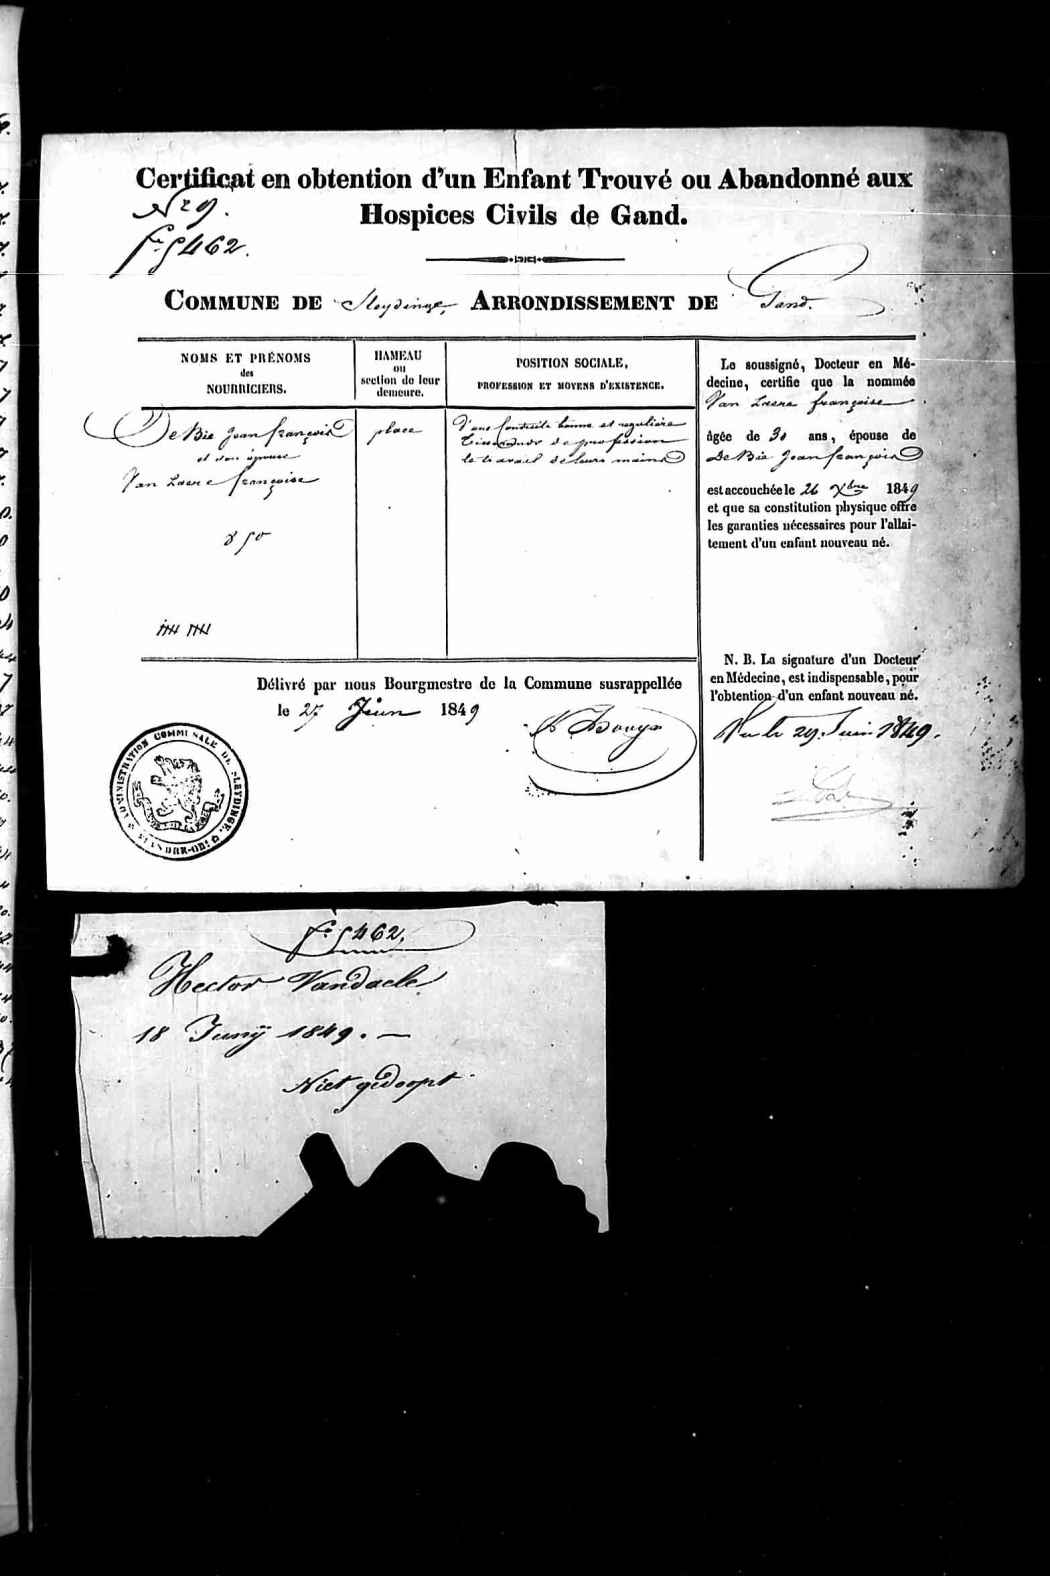 Certificat en obtention d'un Enfant Trouvé ou Abandonné aux
Hospices Civils de Gand.
N.º 9.
fº 5462.
COMMUNE DE Sleydinge, ARRONDISSEMENT DE Gand.
NOMS ET PRÉNOMS
des
NOURRICIERS.
HAMEAU
ou
section de leur
demeure.
POSITION SOCIALE,
PROFESSION ET MOYENS D'EXISTENCE.
De Bie Jean françois
et son épouse
Van Laere françoise
place
d'une conduite bonne et régulière
de profession
le travail de leurs mains
Le soussigné, Docteur en Mé-
decine, certifie que la nommée
Van Laere françoise
âgée de 30 ans, épouse de
De Bie Jean françois
est accouchée le 26 Xbre 1849
et que sa constitution physique offre
les garanties nécessaires pour l'allai-
tement d'un enfant nouveau né.
N. B. La signature d'un Docteur
en Médecine, est indispensable, pour
l'obtention d'un enfant nouveau né.
Vu le 29 Juin 1849.
Délivré par nous Bourgmestre de la Commune susrappellée
le 27 Juin 1849
ADMINISTRATION COMMUNALE DE SLEYDINGE.
FLANDRE-OR.
fº 5462.
Hector Vandaele
18 Junÿ 1849. —
Niet gedoopt